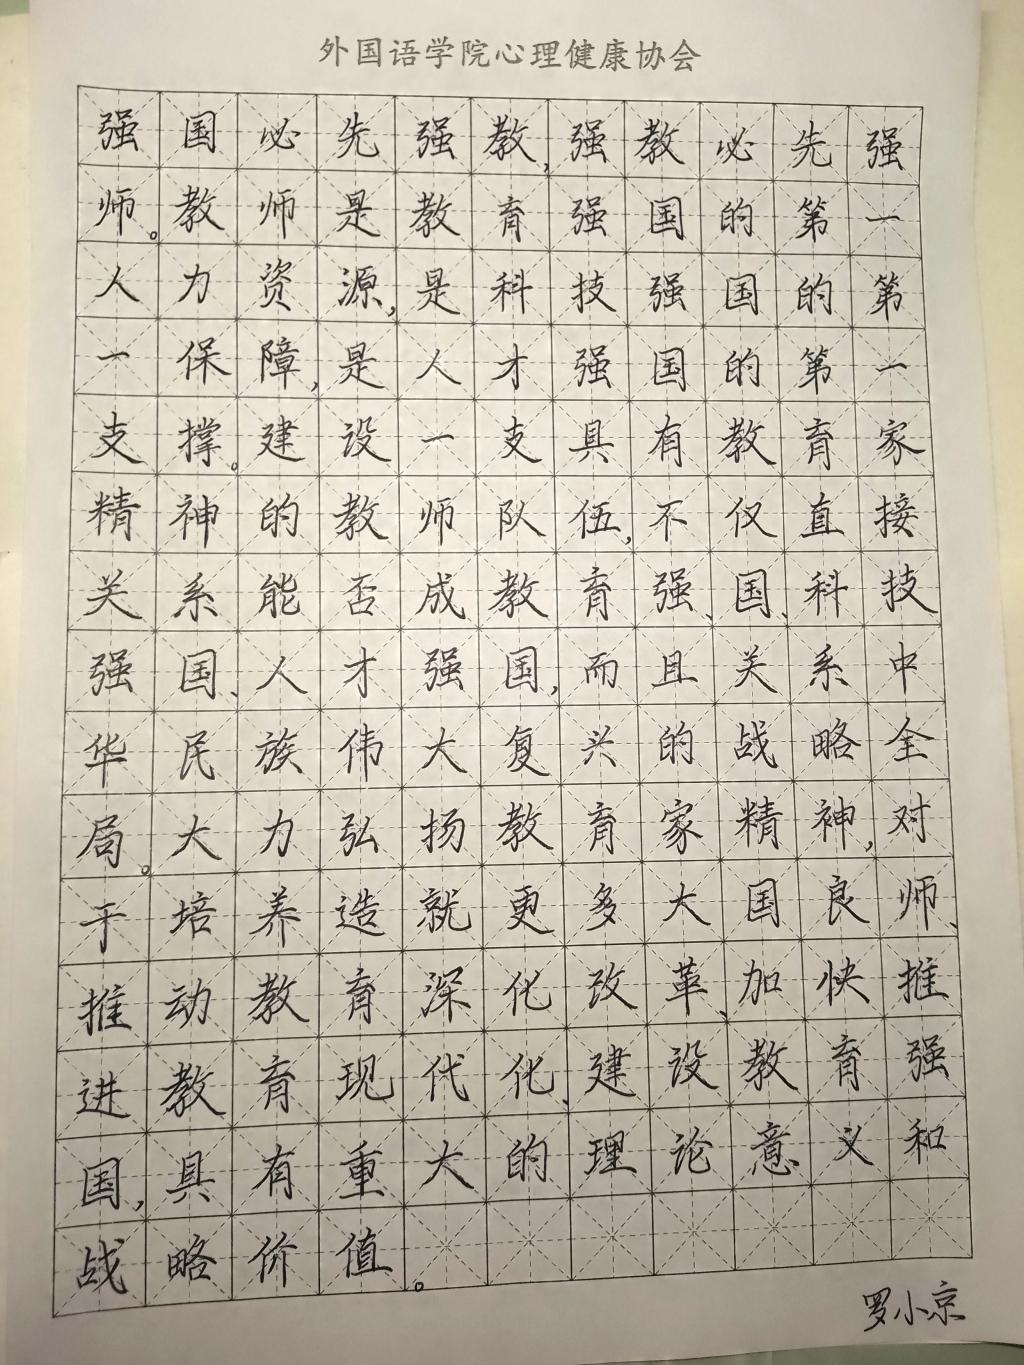 外国语学院心理健康协会
强国必先强教,强教必先强
师。教师是教育强国的第一
人力资源,是科技强国的第
一保障,是人才强国的第一
支撑。建设一支具有教育家
精神的教师队伍,不仅直接
关系能否成教育强、国、科技
强国、人才强国,而且关系中
华民族伟大复兴的战略全
局。大力弘扬教育家精神,对
于培养造就更多大国良师、
推动教育深化改革、加快推
进教育现代化、建设教育强
国,具有重大的理论意义和
战略价值。
罗小京